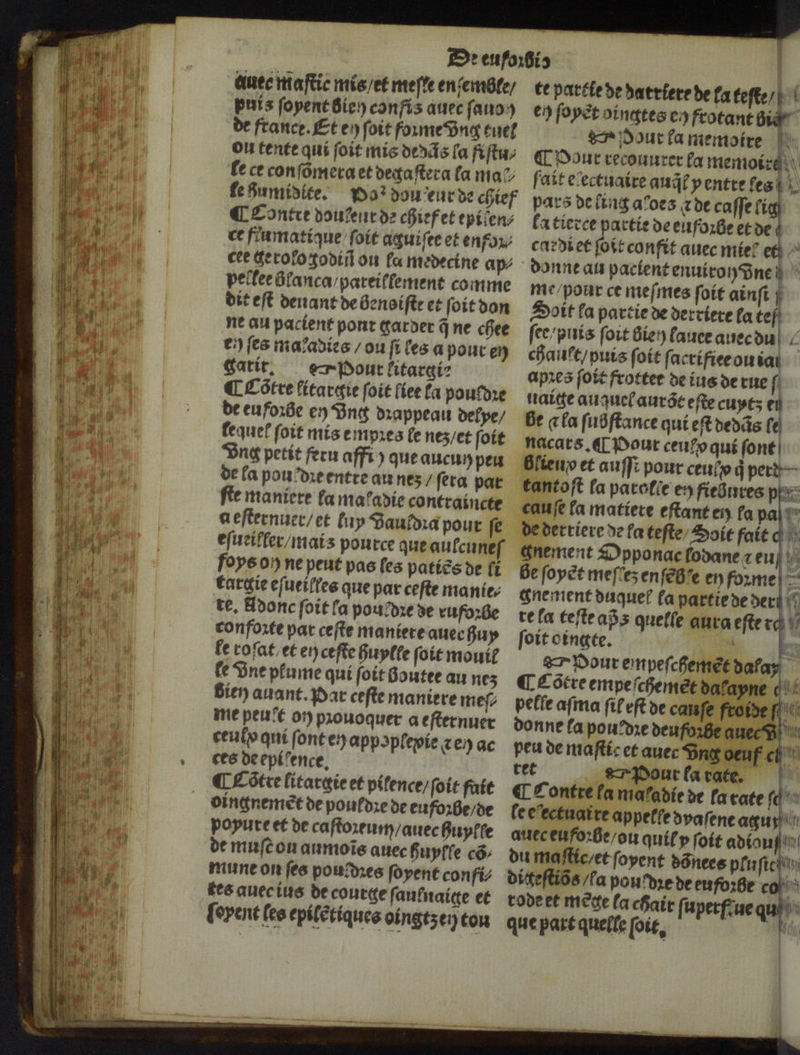 De euforbio
auec mastic mis/et mesle ensemble/
puis soyent bien confis auec sauon
de france. Et en soit forme vng tuel
ou tente qui soit mis dedãs la fistu⸗
le ce consõmera et degastera la mal⸗
le humidite. Poꝰ douleur de chief
¶ Contre douleur de chief et epilen⸗
ce flumatique soit aguisee et enfor⸗
cee gerologodiñ ou la medecine ap⸗
pellee blanca/pareillement comme
dit est deuant de benoiste et soit don
ne au pacient pour garder q̃ ne chee
en ses maladies / ou si les a pour en
garir. ☞ Pour litargie
¶ Cõtre litargie soit liee la pouldre
de euforbe en vng drappeau delye/
lequel soit mis empres le nez/et soit
vng petit feru affin que aucun peu
de la pouldre entre au nez / sera par
ste maniere la maladie contraincte
a esternuer/et luy vauldra pour se
esueiller/mais pource que aulcunes
foys on ne peut pas les patiẽs de li
targie esueilles que par ceste manie⸗
re. Adonc soit la pouldre de euforbe
conforte par ceste maniere auec huy
le rosat et en ceste huylle soit mouil
le vne plume qui soit boutee au nez
bien auant. Par ceste maniere mes⸗
me peult on prouoquer a esternuer
ceulx qui sont en appoplexie ⁊ en ac
ces de epilence.
¶ Cõtre litargie et pilence/soit fait
oingnemẽt de pouldre de euforbe/de
popure et de castoreum/auec huylle
de musc ou aumoĩs auec huylle cõ⸗
mune ou ses pouldres soyent confi⸗
tes auec ius de courge saulnaige et
soyent les epilẽtiques oingtz en tou
te partie de darriere de la teste/
en soyẽt oingtes en frotant bien
☞ Pour la memoire
¶ Pour recouurer la memoire
fait electuaire auq̃l y entre les
pars de ling aloes ⁊ de casse lig
la tierce partie de euforbe et de
cardi et soit confit auec miel et
donne au pacient enuiron vne
me/pour ce mesmes soit ainsi
Soit la partie de derriere la tes
see/puis soit bien lauee auec du
chault/puis soit sacrifiee ou
apres soit frottee de ius de rue
uaige auquel aurõt este cuytz en
be ⁊ la substance qui est dedãs le
nacars. ¶ Pour ceulx qui sont
blieux et aussi pour ceulx q̃ perd
tantost la parolle en fiebures
cause la matiere estant en la pa
de derriere de la teste/Soit fait
gnement Opponac lodane ⁊ eu
be soyẽt meslez ensẽble en forme
gnement duquel la partie de derr
re la teste ap̃s quelle aura este
soit oingte.
☞ Pour empeschemẽt dalay
¶ Cõtre empeschemẽt dalayne
pelle asma sil est de cause froide
donne la pouldre deuforbe auec
peu de mastic et auec vng oeuf
ret ☞ Pour la rate.
¶ Contre la maladie de la rate
le electuaire appelle dyasene aguy
auec euforbe/ou quil y soit adiou
du mastic/et soyent dõnees plusi
digestiõs/la pouldre de euforbe co
rode et mẽge la chair superflue
que part quelle soit.